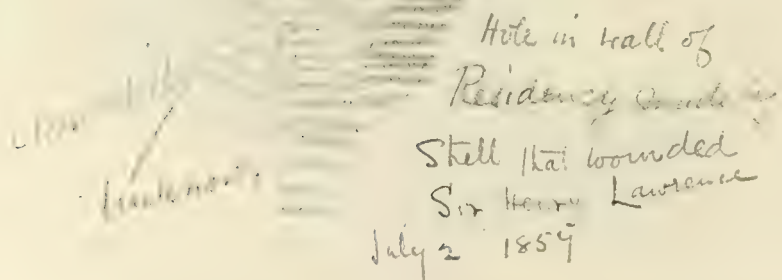 Hole in wall of
Residency made by
Shell that wounded
Sir Henry Lawrence
July 2 1857
Lucknow